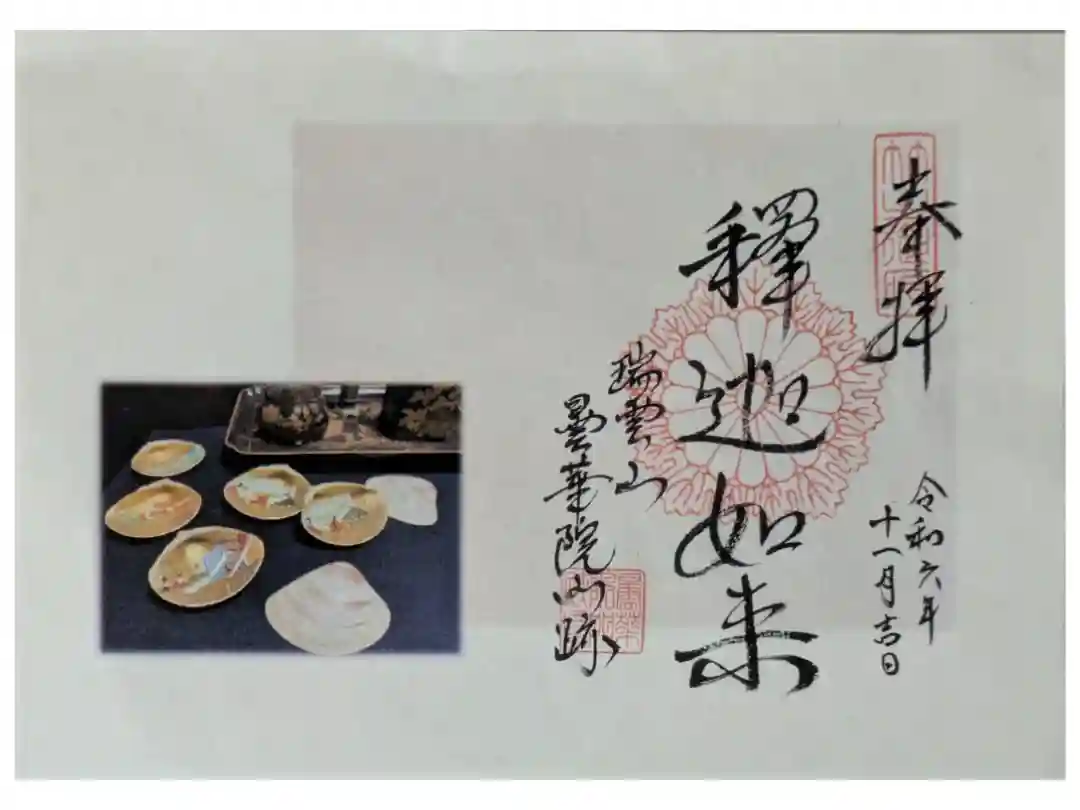 奉拝
令和六年
十一月吉日
釋迦如来
瑞雲山
曇華院山跡